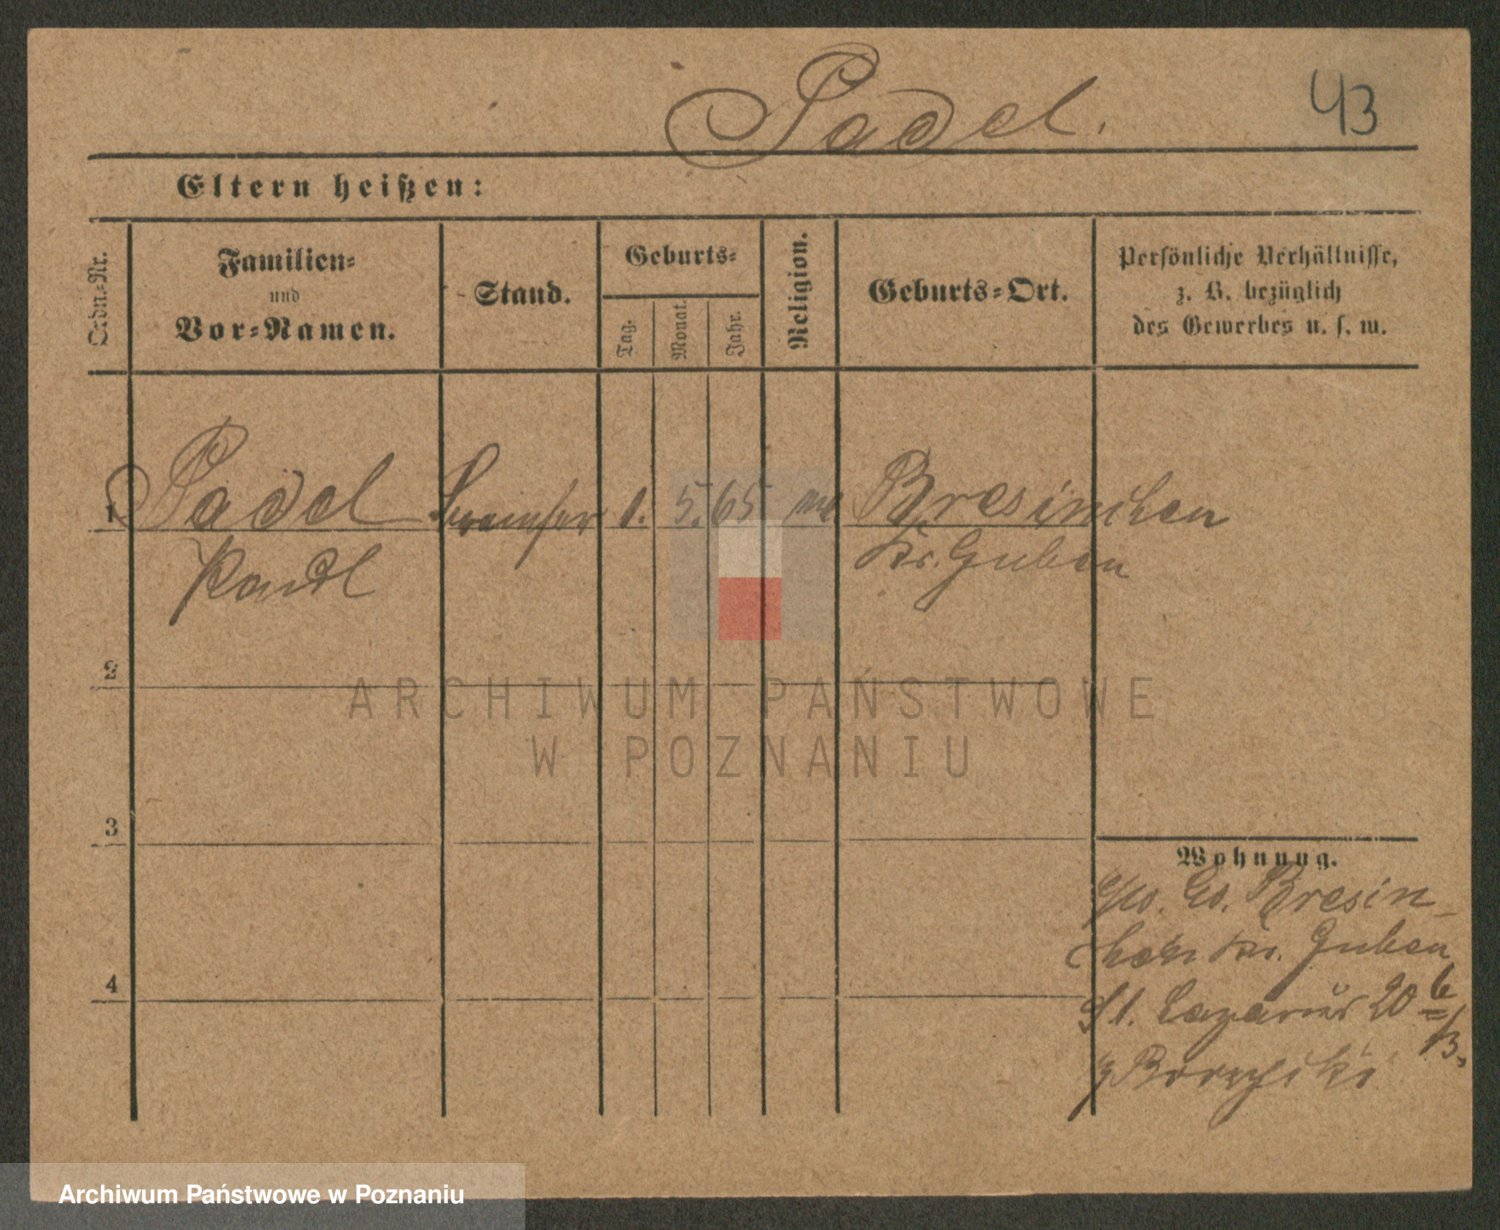 Padel.
43
Eltern heißen:
Ordn.-Nr.
Familien-
und
Vor-Namen.
Stand.
Geburts-
Tag.
Monat.
Jahr.
Religion.
Geburts-Ort.
Persönliche Verhältnisse,
z. B. bezüglich
des Gewerbes u. s. w.
1
Padel
1. 5. 65
Bresinchen
Kr. Guben
2
3
4
Wohnung.
Bresin-
chen Kr. Guben
St. Lazarus 20
ARCHIWUM PAŃSTWOWE
W POZNANIU
Archiwum Państwowe w Poznaniu